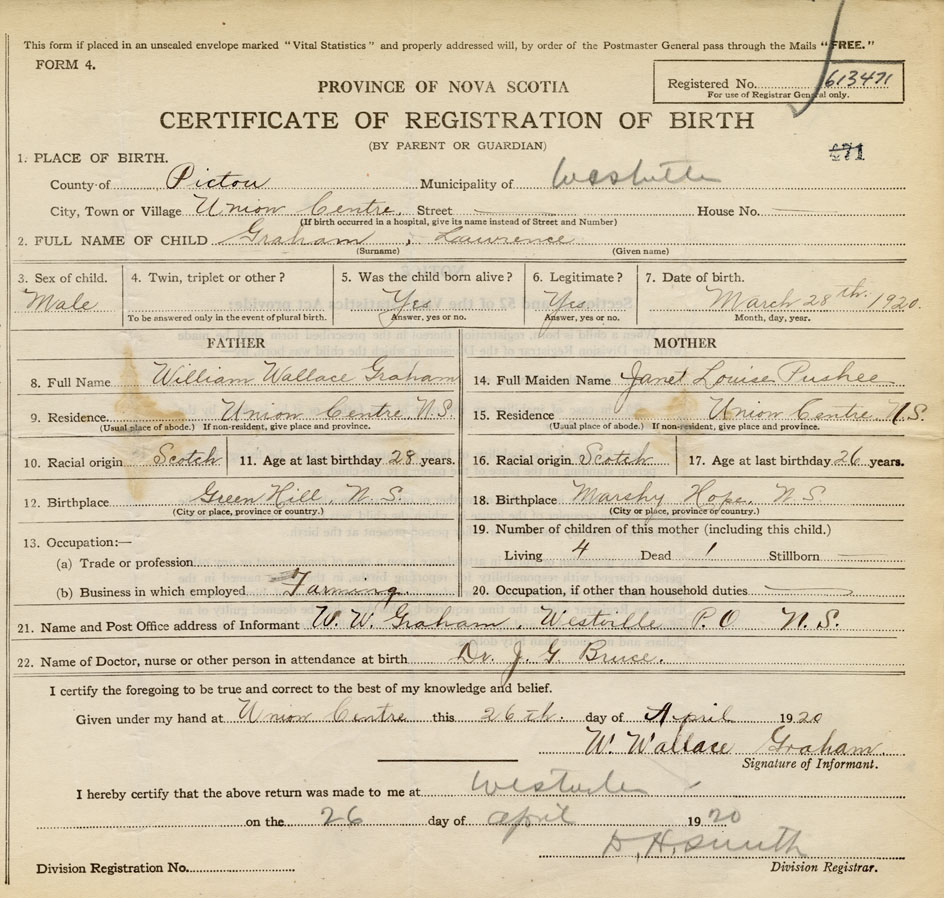 This form if placed in an unsealed envelope marked "Vital Statistics" and properly addressed will, by order of the Postmaster General pass through the Mails "FREE."
FORM 4.
PROVINCE OF NOVA SCOTIA
Registered No. 613471
For use of Registrar General only.
CERTIFICATE OF REGISTRATION OF BIRTH
(BY PARENT OR GUARDIAN)
1. PLACE OF BIRTH.
County of Pictou Municipality of
City, Town or Village Union Centre, Street House No.
(If birth occurred in a hospital, give its name instead of Street and Number)
2. FULL NAME OF CHILD Graham, Lawrence
(Surname) (Given name)
3. Sex of child. 4. Twin, triplet or other? 5. Was the child born alive? 6. Legitimate? 7. Date of birth.
Male Yes Yes March 28th. 1920.
To be answered only in the event of plural birth. Answer, yes or no. Answer, yes or no. Month, day, year.
FATHER MOTHER
8. Full Name William Wallace Graham 14. Full Maiden Name Janet Louise Pushee
9. Residence Union Centre N.S. 15. Residence Union Centre N.S.
(Usual place of abode.) If non-resident, give place and province. (Usual place of abode.) If non-resident, give place and province.
10. Racial origin Scotch 11. Age at last birthday 28 years. 16. Racial origin Scotch 17. Age at last birthday 26 years.
12. Birthplace Green Hill, N.S. 18. Birthplace Marshy Hope, N.S.
(City or place, province or country.) (City or place, province or country.)
19. Number of children of this mother (including this child.)
13. Occupation:—
Living 4 Dead 1 Stillborn
(a) Trade or profession
(b) Business in which employed Farming. 20. Occupation, if other than household duties
21. Name and Post Office address of Informant W. W. Graham, Westville P.O N.S.
22. Name of Doctor, nurse or other person in attendance at birth Dr. J. G Bruce.
I certify the foregoing to be true and correct to the best of my knowledge and belief.
Given under my hand at Union Centre this 26th. day of April 1920
W. Wallace Graham.
Signature of Informant.
I hereby certify that the above return was made to me at Westville
on the 26 day of april 1920
D. H. Smith
Division Registration No. Division Registrar.